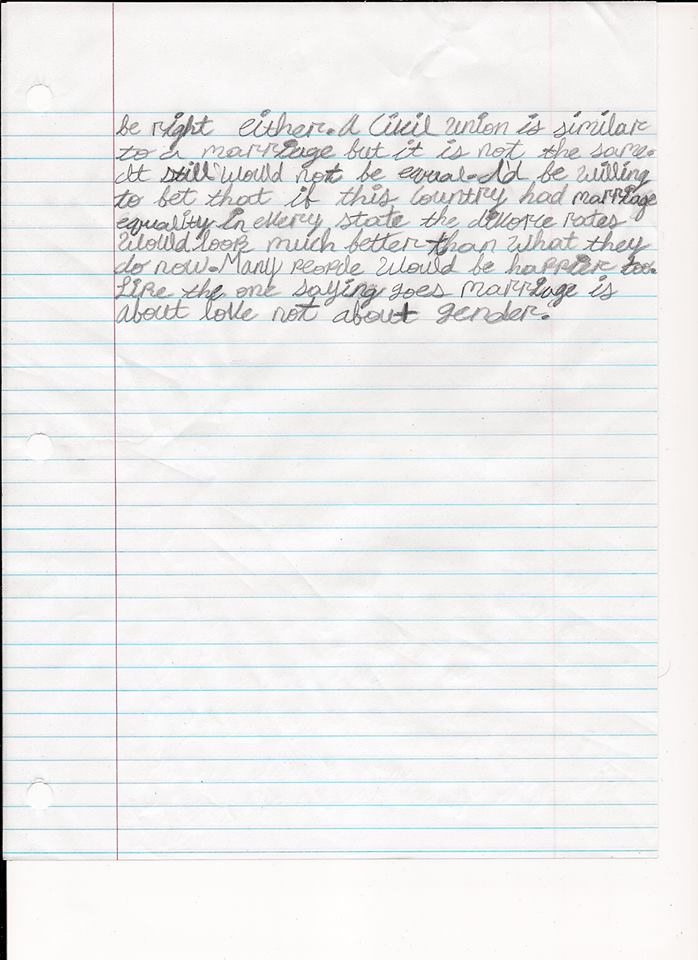 be right either. A Civil Union is similar
to a marriage but it is not the same.
It still would not be equal. I'd be willing
to bet that if this Country had marriage
equality in every state the divorce rates
Would look much better than what they
do now. Many people Would be happier too.
Like the one saying goes marriage is
about love not about gender.